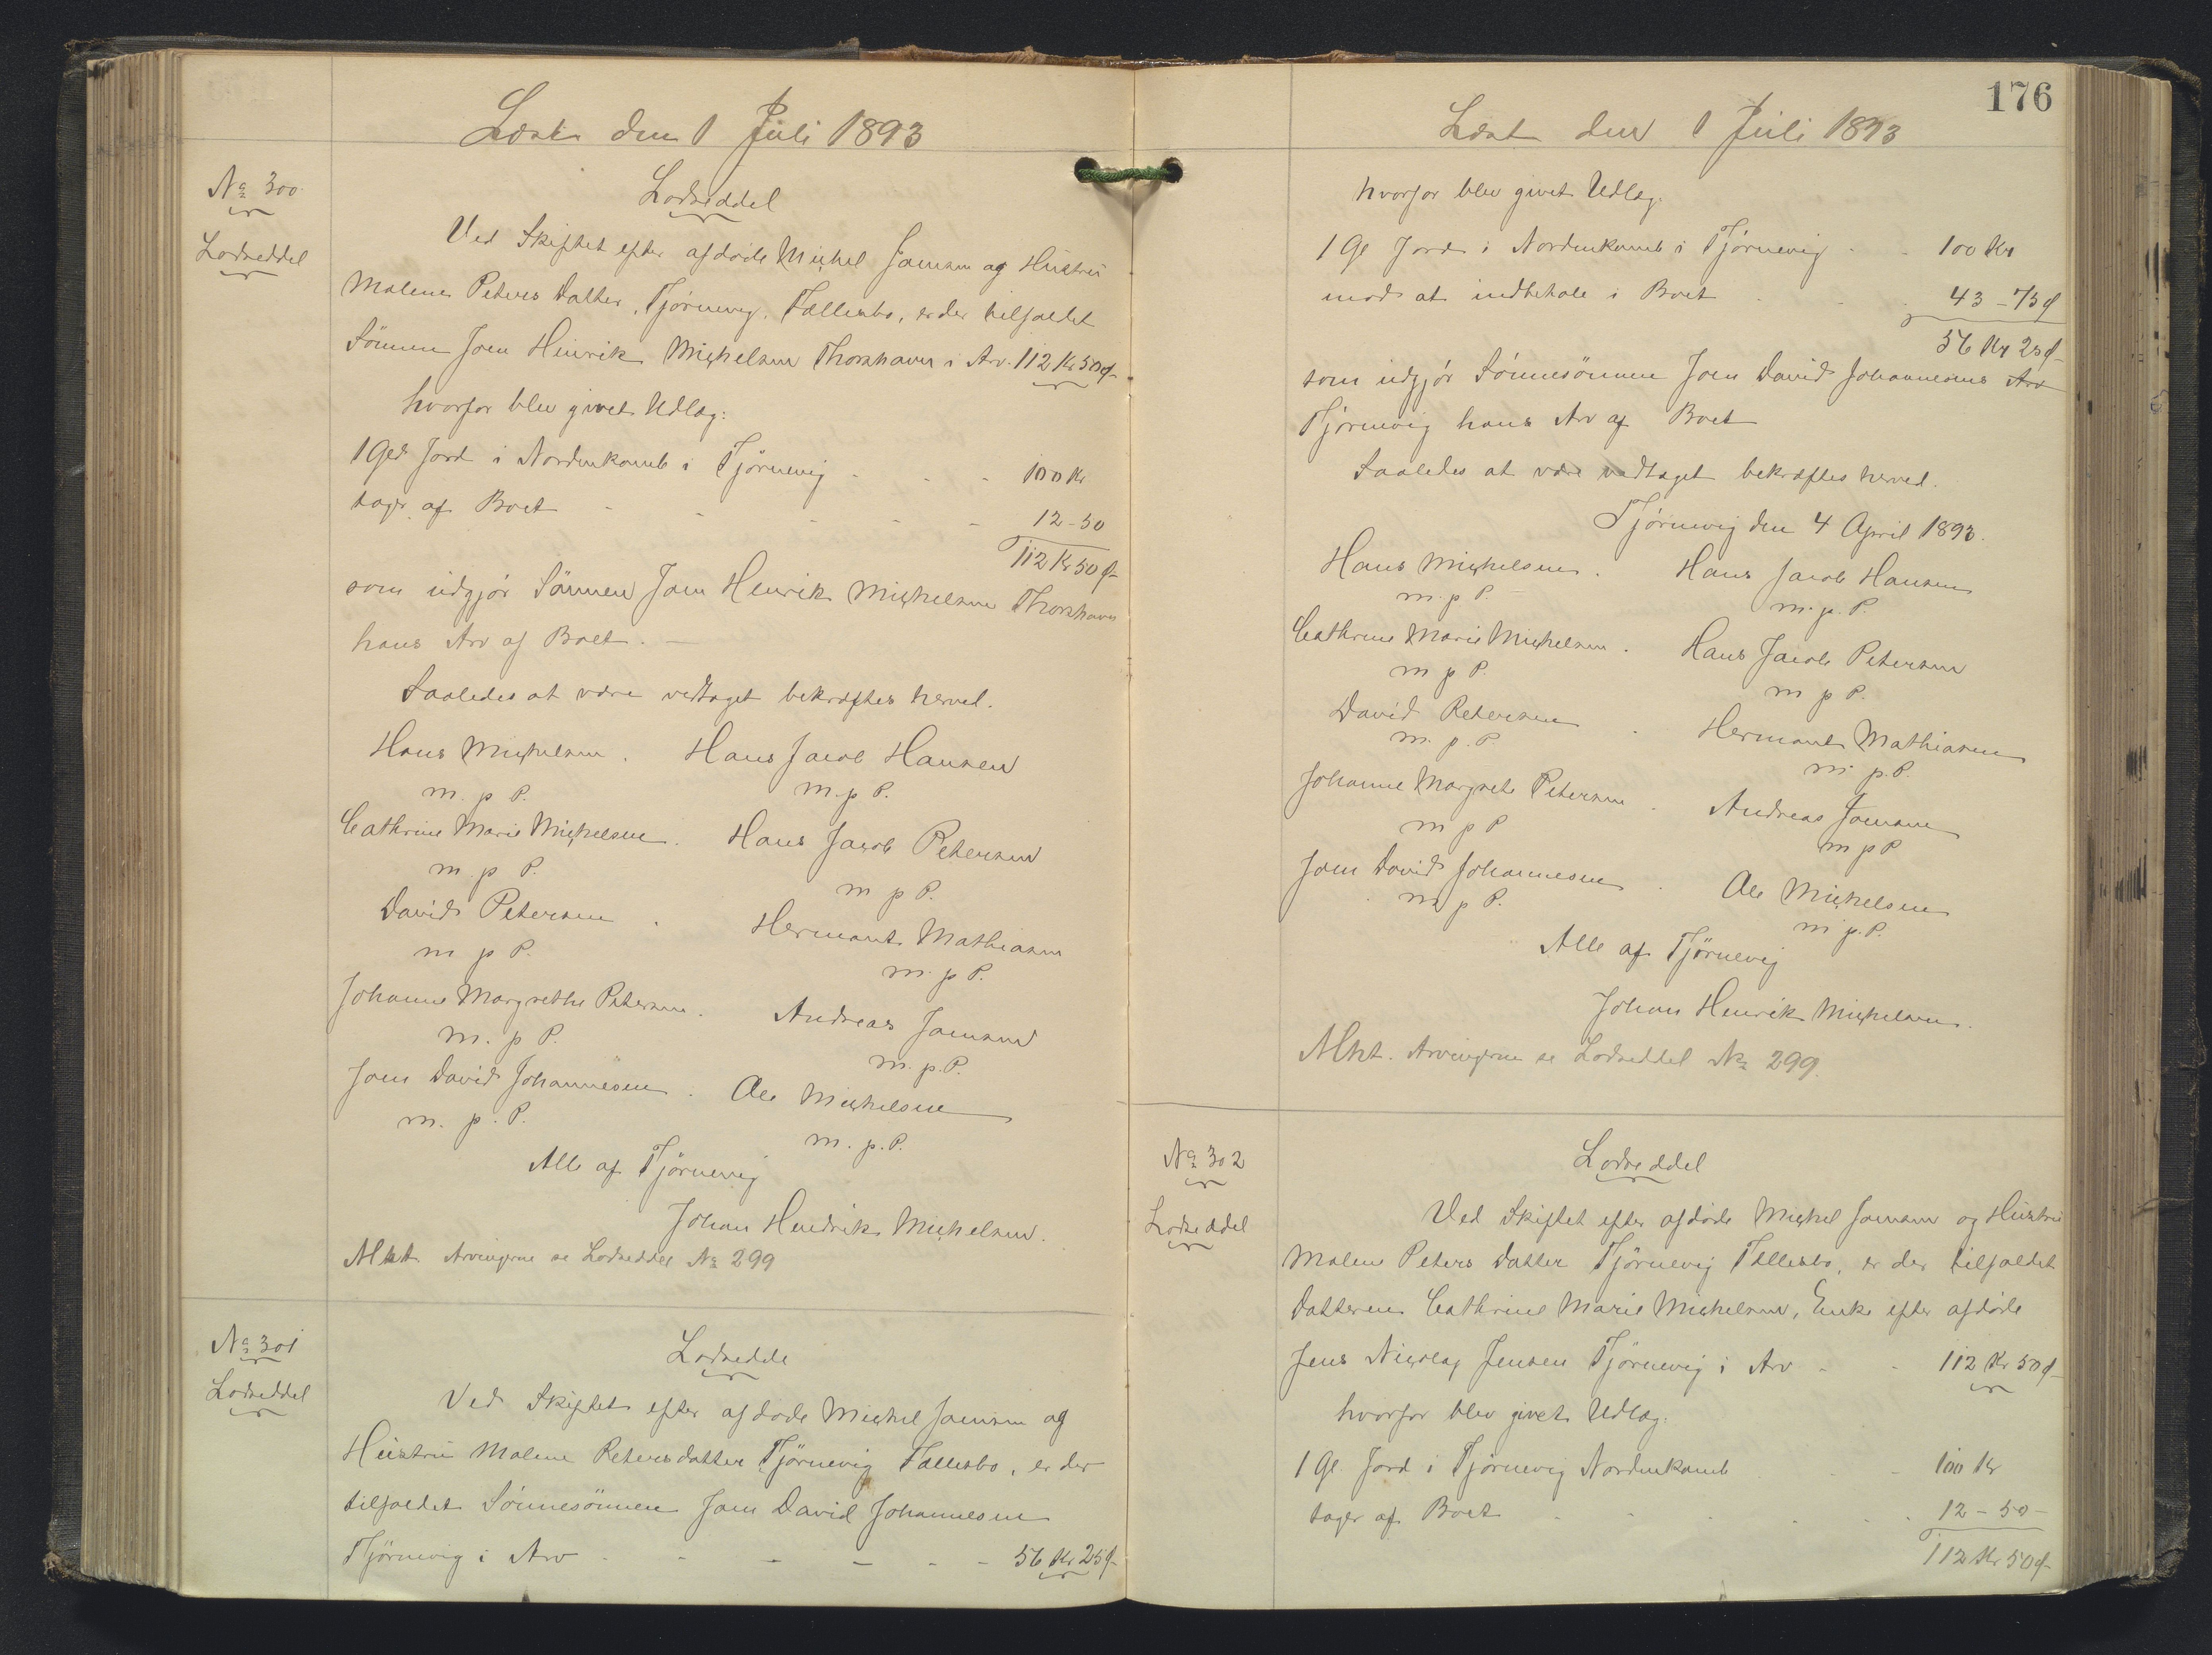 Læst den 1 Juli 1893
No 300
Lodseddel
Lodseddel
Ved Skiftet efter afdøde Michel Joensen og Hustru
Malene Peters Datter, Tjörnevig, Fællesbo, er der tilfaldet
Sönnen Joen Hinrik Michelsen Thorshavn i Arv. 112 Kr 50 Ø
hvorfor blev givet Udlæg:
1 Gld Jord i Nordenkamb i Tjörnevig - - - 100 Kr
tager af Boet - - - - - 12-50
112 Kr 50 Ø
som udgjør Sönnen Joen Henrik Michelsen Thorshavn
hans Arv af Boet. -
Saaledes at være vedtaget bekræftes herved.
Hans Michelsen . Hans Jacob Hansen
m. p P. m. p P.
Cathrine Marie Michelsen . Hans Jacob Petersen
m. p P. m p P.
David Petersen . Hermant Mathiasen
m p P. m. p P.
Johanne Margrethe Petersen . Andreas Joensen
m. p P. m. p. P.
Joen David Johannesen . Ole Michelsen
m. p. P. m. p. P.
Alle af Tjörnevig
Johan Hendrik Michelsen.
Mht Arvingerne se Lodseddel No 299
No 301
Lodseddel
Lodsedde
Ved Skiftet efter afdøde Michel Joensen og
Hustru Malene Petersdatter Tjörnevig Fællesbo, er der
tilfaldet Sönnesönnen Joen David Johannesen
Tjörnevig i Arv - - - - - - 56 Kr 25 Ø
176
Læst den 1 Juli 1893
hvorfor blev givet Udlæg:
1 Gl Jord i Nordenkamb i Tjörnevig - - 100 Kr
mod at indbetale i Boet - - - 43 - 75 Ø
56 Kr 25 Ø
som udgjør Sönnesönnen Joen David Johannesens Arv
Tjörnevig hans Arv af Boet
Saaledes at være vedtaget bekræftes herved.
Tjörnevig den 4 April 1893.
Hans Michelsen . Hans Jacob Hansen
m. p P. m. p. P.
Cathrine Marie Michelsen . Hans Jacob Petersen
m p P. m p P.
David Petersen . Hermant Mathiasen
m. p. P. m. p. P.
Johanne Margrete Petersen . Andreas Joensen
m p P m p P
Joen David Johannesen . Ole Michelsen
m p P. m p. P.
Alle af Tjörnevig
Johan Henrik Michelsen.
Mht. Arvingerne se Lodseddel No 299.
No 302
Lodseddel
Lodseddel
Ved Skiftet efter afdøde Michel Joensen og Hustru
Malene Peters Datter Tjörnevig Fællesbo, er der tilfaldet
Datteren Cathrine Marie Michelsen, Enke efter afdøde
Jens Nicolaj Jensen Tjörnevig i Arv - - 112 Kr 50 Ø
hvorfor blev givet Udlæg:
1 Gl. Jord i Tjörnevig Nordenkamb - - 100 Kr
tager af Boet - - - - - - 12 - 50 -
112 Kr 50 Ø